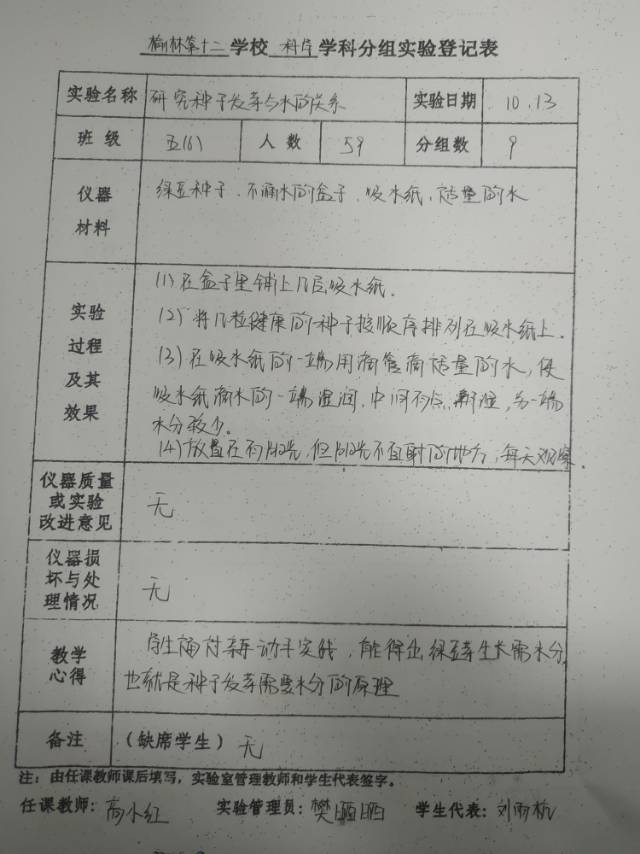 榆林第十二学校 科学 学科分组实验登记表
实验名称 研究种子发芽与水的关系 实验日期 10.13
班级 五(6) 人数 59 分组数 9
仪器材料 绿豆种子、不漏水的盒子、吸水纸、适量的水
实验过程及其效果
(1)在盒子里铺上几层吸水纸.
(2)将几粒健康的种子按顺序排列在吸水纸上.
(3)在吸水纸的一端用滴管滴适量的水,使
吸水纸滴水的一端湿润,中间有点潮湿,另一端
水分较少.
(4)放置在有阳光,但阳光不直射的地方,每天观察.
仪器质量或实验改进意见 无
仪器损坏与处理情况 无
教学心得
学生通过亲手动手实践,能得出绿豆芽生长需水分
也就是种子发芽需要水分的原理
备注 (缺席学生) 无
注:由任课教师课后填写,实验室管理教师和学生代表签字。
任课教师:高小红 实验管理员:樊晒晒 学生代表:刘雨杭